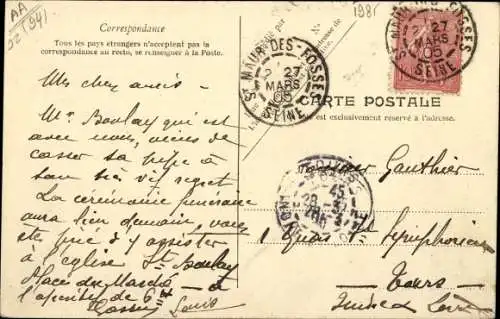 AA
02 (941
1981
Correspondance
Tous les pays étrangers n'acceptent pas la
correspondance au recto, se renseigner à la Poste.
Mes chers amis
Mr Boulay qui est
avec nous, viens de
casser sa pipe à
son vif regret
La cérémonie funéraire
aura lieu demain, vous
êtes prié d'y assister
à l'église St Boulay
Place du Marché - à
l'apéritif de 6
Louis
ST MAUR-DES-FOSSES
27
MARS
05
SEINE
ST MAUR-DES-FOSSES
27
MARS
05
SEINE
CARTE POSTALE
est exclusivement réservé à l'adresse.
45
28
Monsieur Gauthier
1 Quai St Symphorien
Tours
Indre &